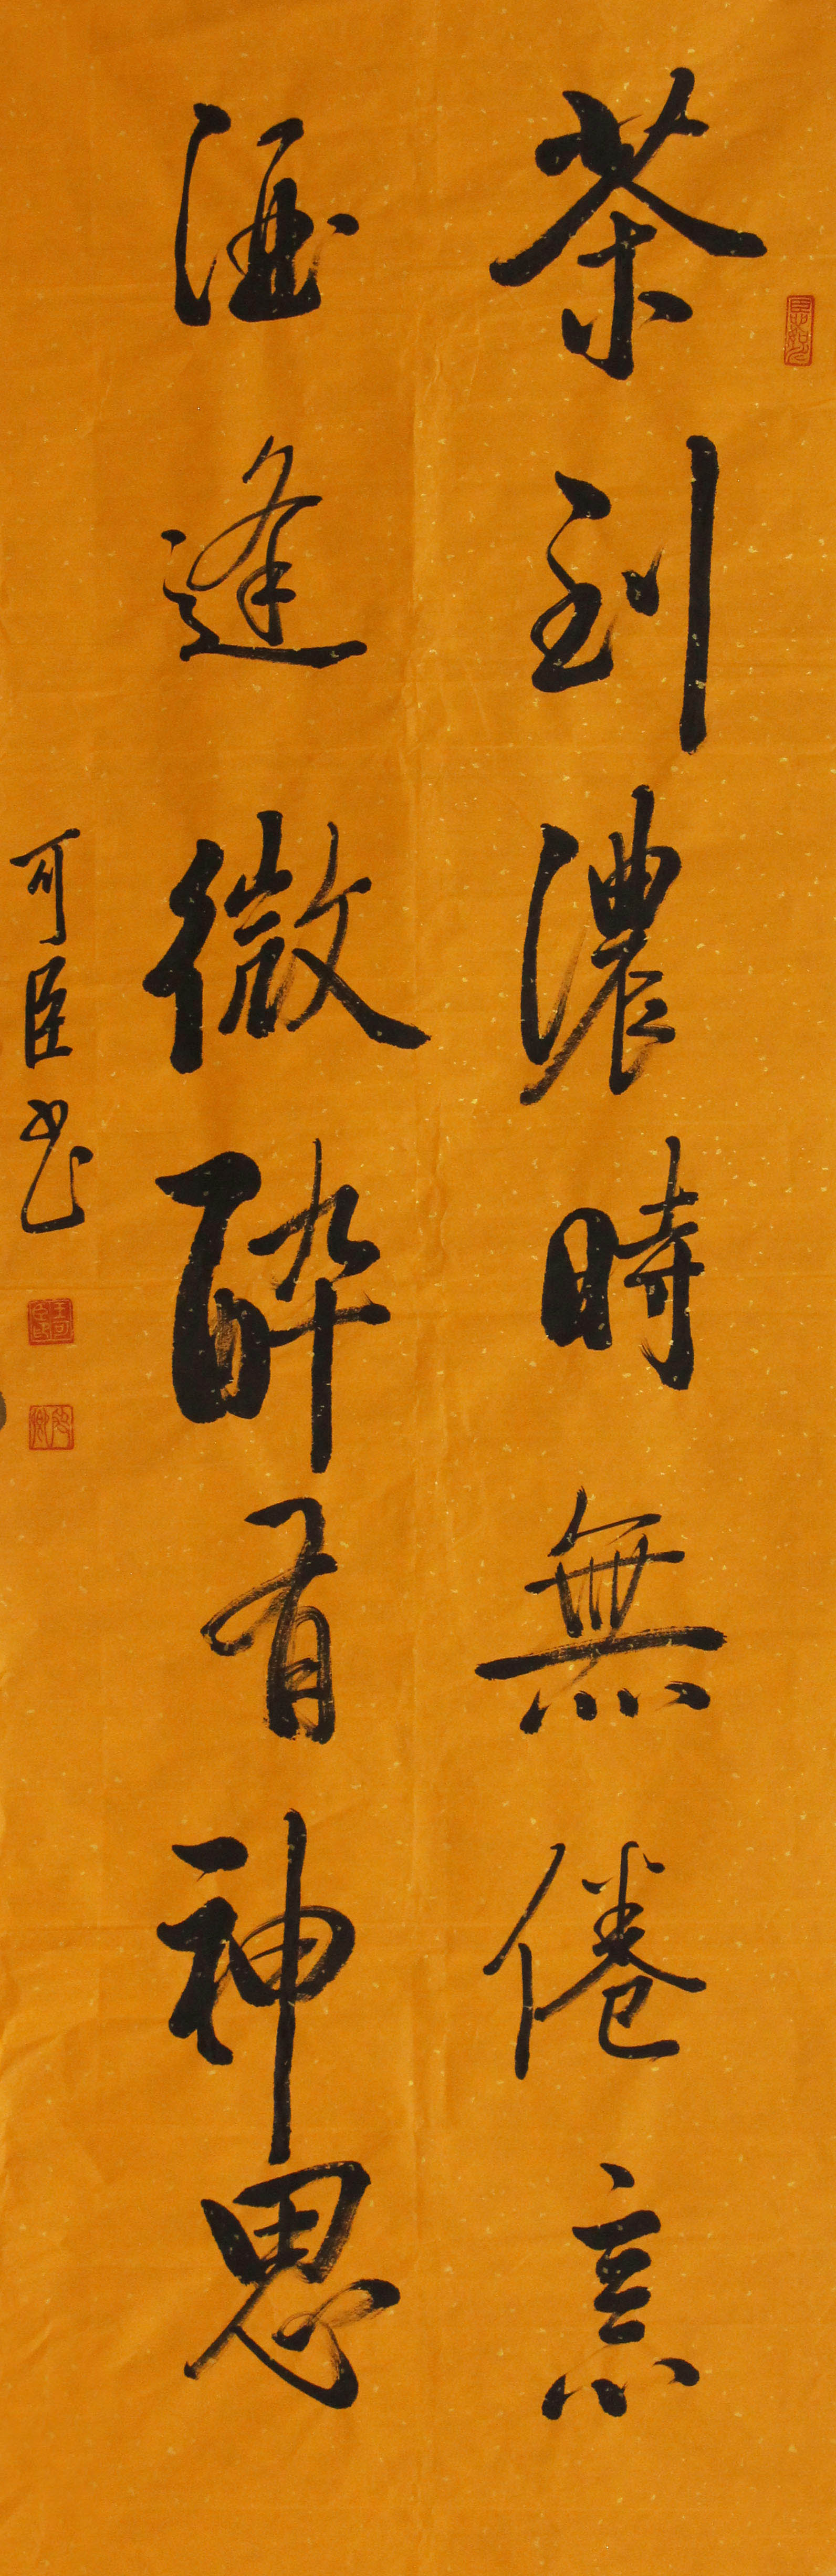 茶到濃時無倦意
酒逢微醉有神思
可臣书
王可臣印